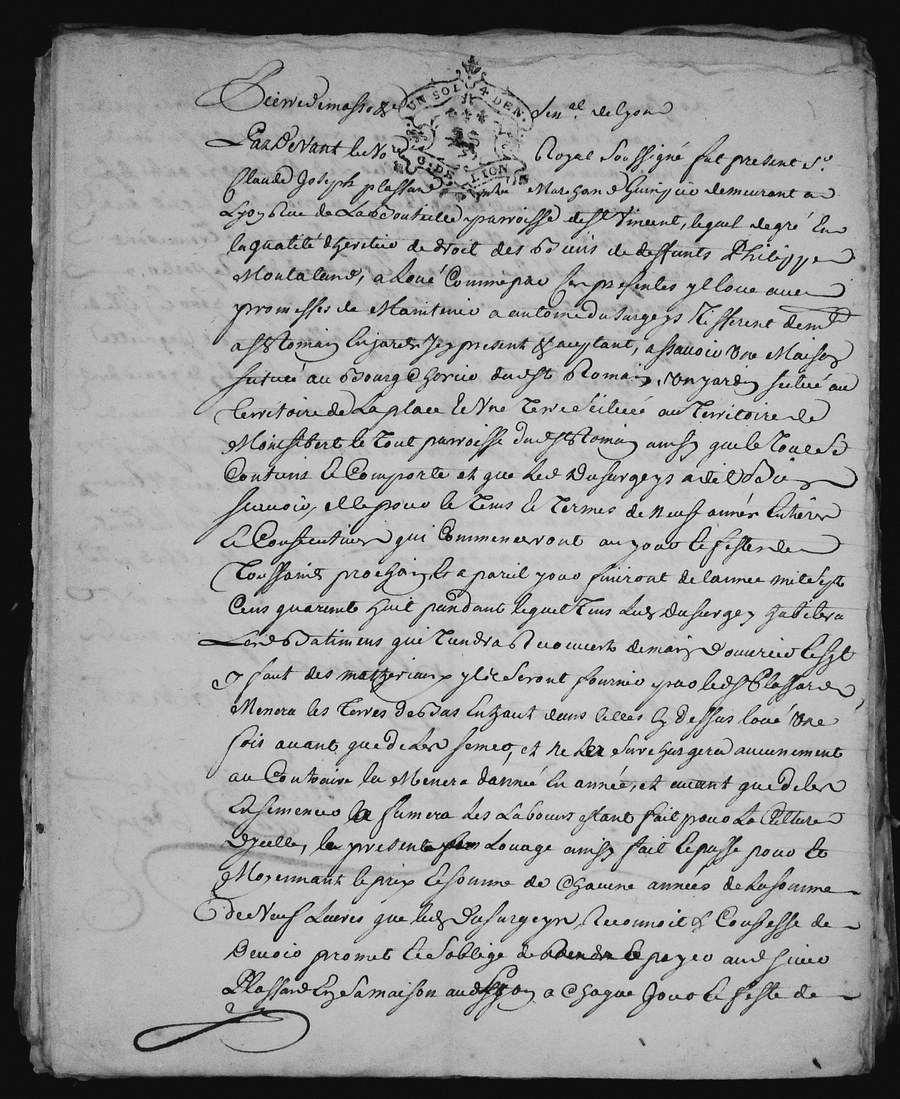 UN SOL 4 DEN.
G. DE LION
de Lyon
Par Devant le No.re Royal Soussigné fut present S.r
Claude Joseph plassard Marchand demeurant a
Lyon Rue de La Bouteille parroisse de St Vincent, lequel de gré En
la qualité d'heritier de droit des Biens de deffunts Philippe
Montaland, a Loué Comme par Ses presentes yl loue avec
promesses de Maintenir a antoine dusurgeys Tisserent dem.t
a St Romain En jarets Jcy present & aceptant, assavoir Une Maison
scituée au Bourg dud St Romain, Un jardin scitué au
Territoire de La place & Une Terre scituée au Territoire de
le Tout parroisse dud St Romain ainsy que le Tout Se
Contient & Comporte et que Led Dusurgeys a dit Bien
sçavoir, et ce pour le Tems & Termes de Neuf année Entiere
& Consecutives qui Commenceront au jour & feste de
Toussaint prochain & a pareil jour finiront de lannée mil sept
Cens quarente huit pandant lequel Tems Led Dusurgey habitera
Lesd Batimens qui Tiendra Recouvert de main D'ouvrier & sil
y faut des matheriaux yls Seront fournir par led Sr Plassard
Menera les Terres de Bas En haut dans celles Cy Dessus loué Une
fois avant que de Les semer, et ne les Surchargera aucunement
au Contraire les Menera d'année En année, et avant que de les
Ensemencer les fumera Les Labours estant fait pour La Culture
D'icelles, le present Louage ainsy fait & passé pour &
Moyennant le prix & somme de Chacune années de La somme
de Neuf Livres que led Dusurgeys Reconnoit & Confesse de
Devoir promet & s'oblige de Rendre & payer aud sieur
Plassard En Sa maison aud Lyon a Chaque Jour & feste de